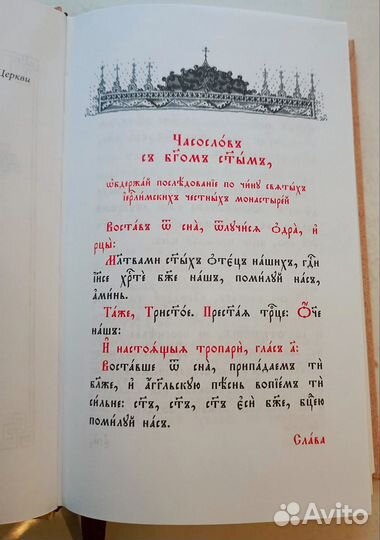 Церкви
Часосло́въ
съ бг҃омъ ст҃ы́мъ,
ѡ҆бдержа́й послѣ́дованїе по чи́ну свѧты́хъ
і҆ерⷭ҇ли́мскихъ че́стныхъ монастыре́й
Воста́въ ѿ сна̀, ѿлꙋчи́сѧ ѻ҆дра̀, и҆
рцы̀:
Мл҃твами ст҃ы́хъ ѻ҆тє́цъ на́шихъ, гдⷭ҇и
і҆и҃се хрⷭ҇тѐ бж҃е на́шъ, поми́лꙋй на́съ,
а҆ми́нь.
Та́же, Трист҃о́е. Прест҃а́ѧ трⷪ҇це: Ѻ҆́ч҃е
на́шъ:
И҆ настоѧ́щыѧ тропари̑, гла́съ а҃:
Воста́вше ѿ сна̀, припа́даемъ тѝ
бл҃же, и҆ а҆́гг҃льскꙋю пѣ́снь вопїе́мъ тѝ
си́льне: ст҃ъ, ст҃ъ, ст҃ъ є҆сѝ бж҃е, бцⷣею
поми́лꙋй на́съ.
Сла́ва
Avito